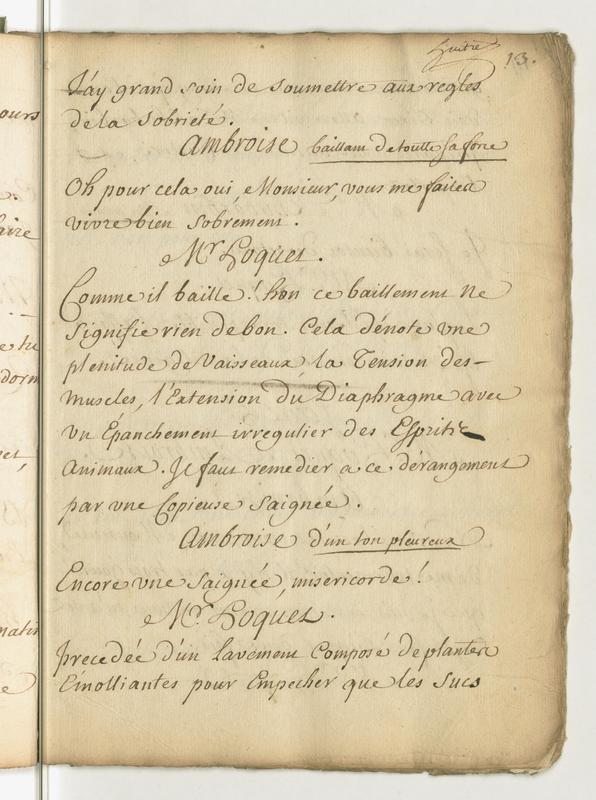 ours
aire
e tu
dorm
et,
natin
e
huitre 13.
J'ay grand soin de soumettre aux regles
de la sobrieté.
Ambroise baillant de toutte sa force
Oh pour cela oui, Monsieur, vous me faites
vivre bien sobrement.
Mr. Hoquet.
Comme il baille! hon ce baillement ne
signifie rien de bon. Cela dénote une
plenitude de vaisseaux la Tension des-
muscles, l'Extension du Diaphragme avec
un Epanchement irregulier des Esprits
animaux. Il faut remedier a ce dérangement
par une Copieuse saignée.
Ambroise d'un ton pleureux
Encore une saignée, misericorde!
Mr. Hoquet.
precedée d'un lavement Composé de plantes
Emolliantes pour Empecher que les sucs